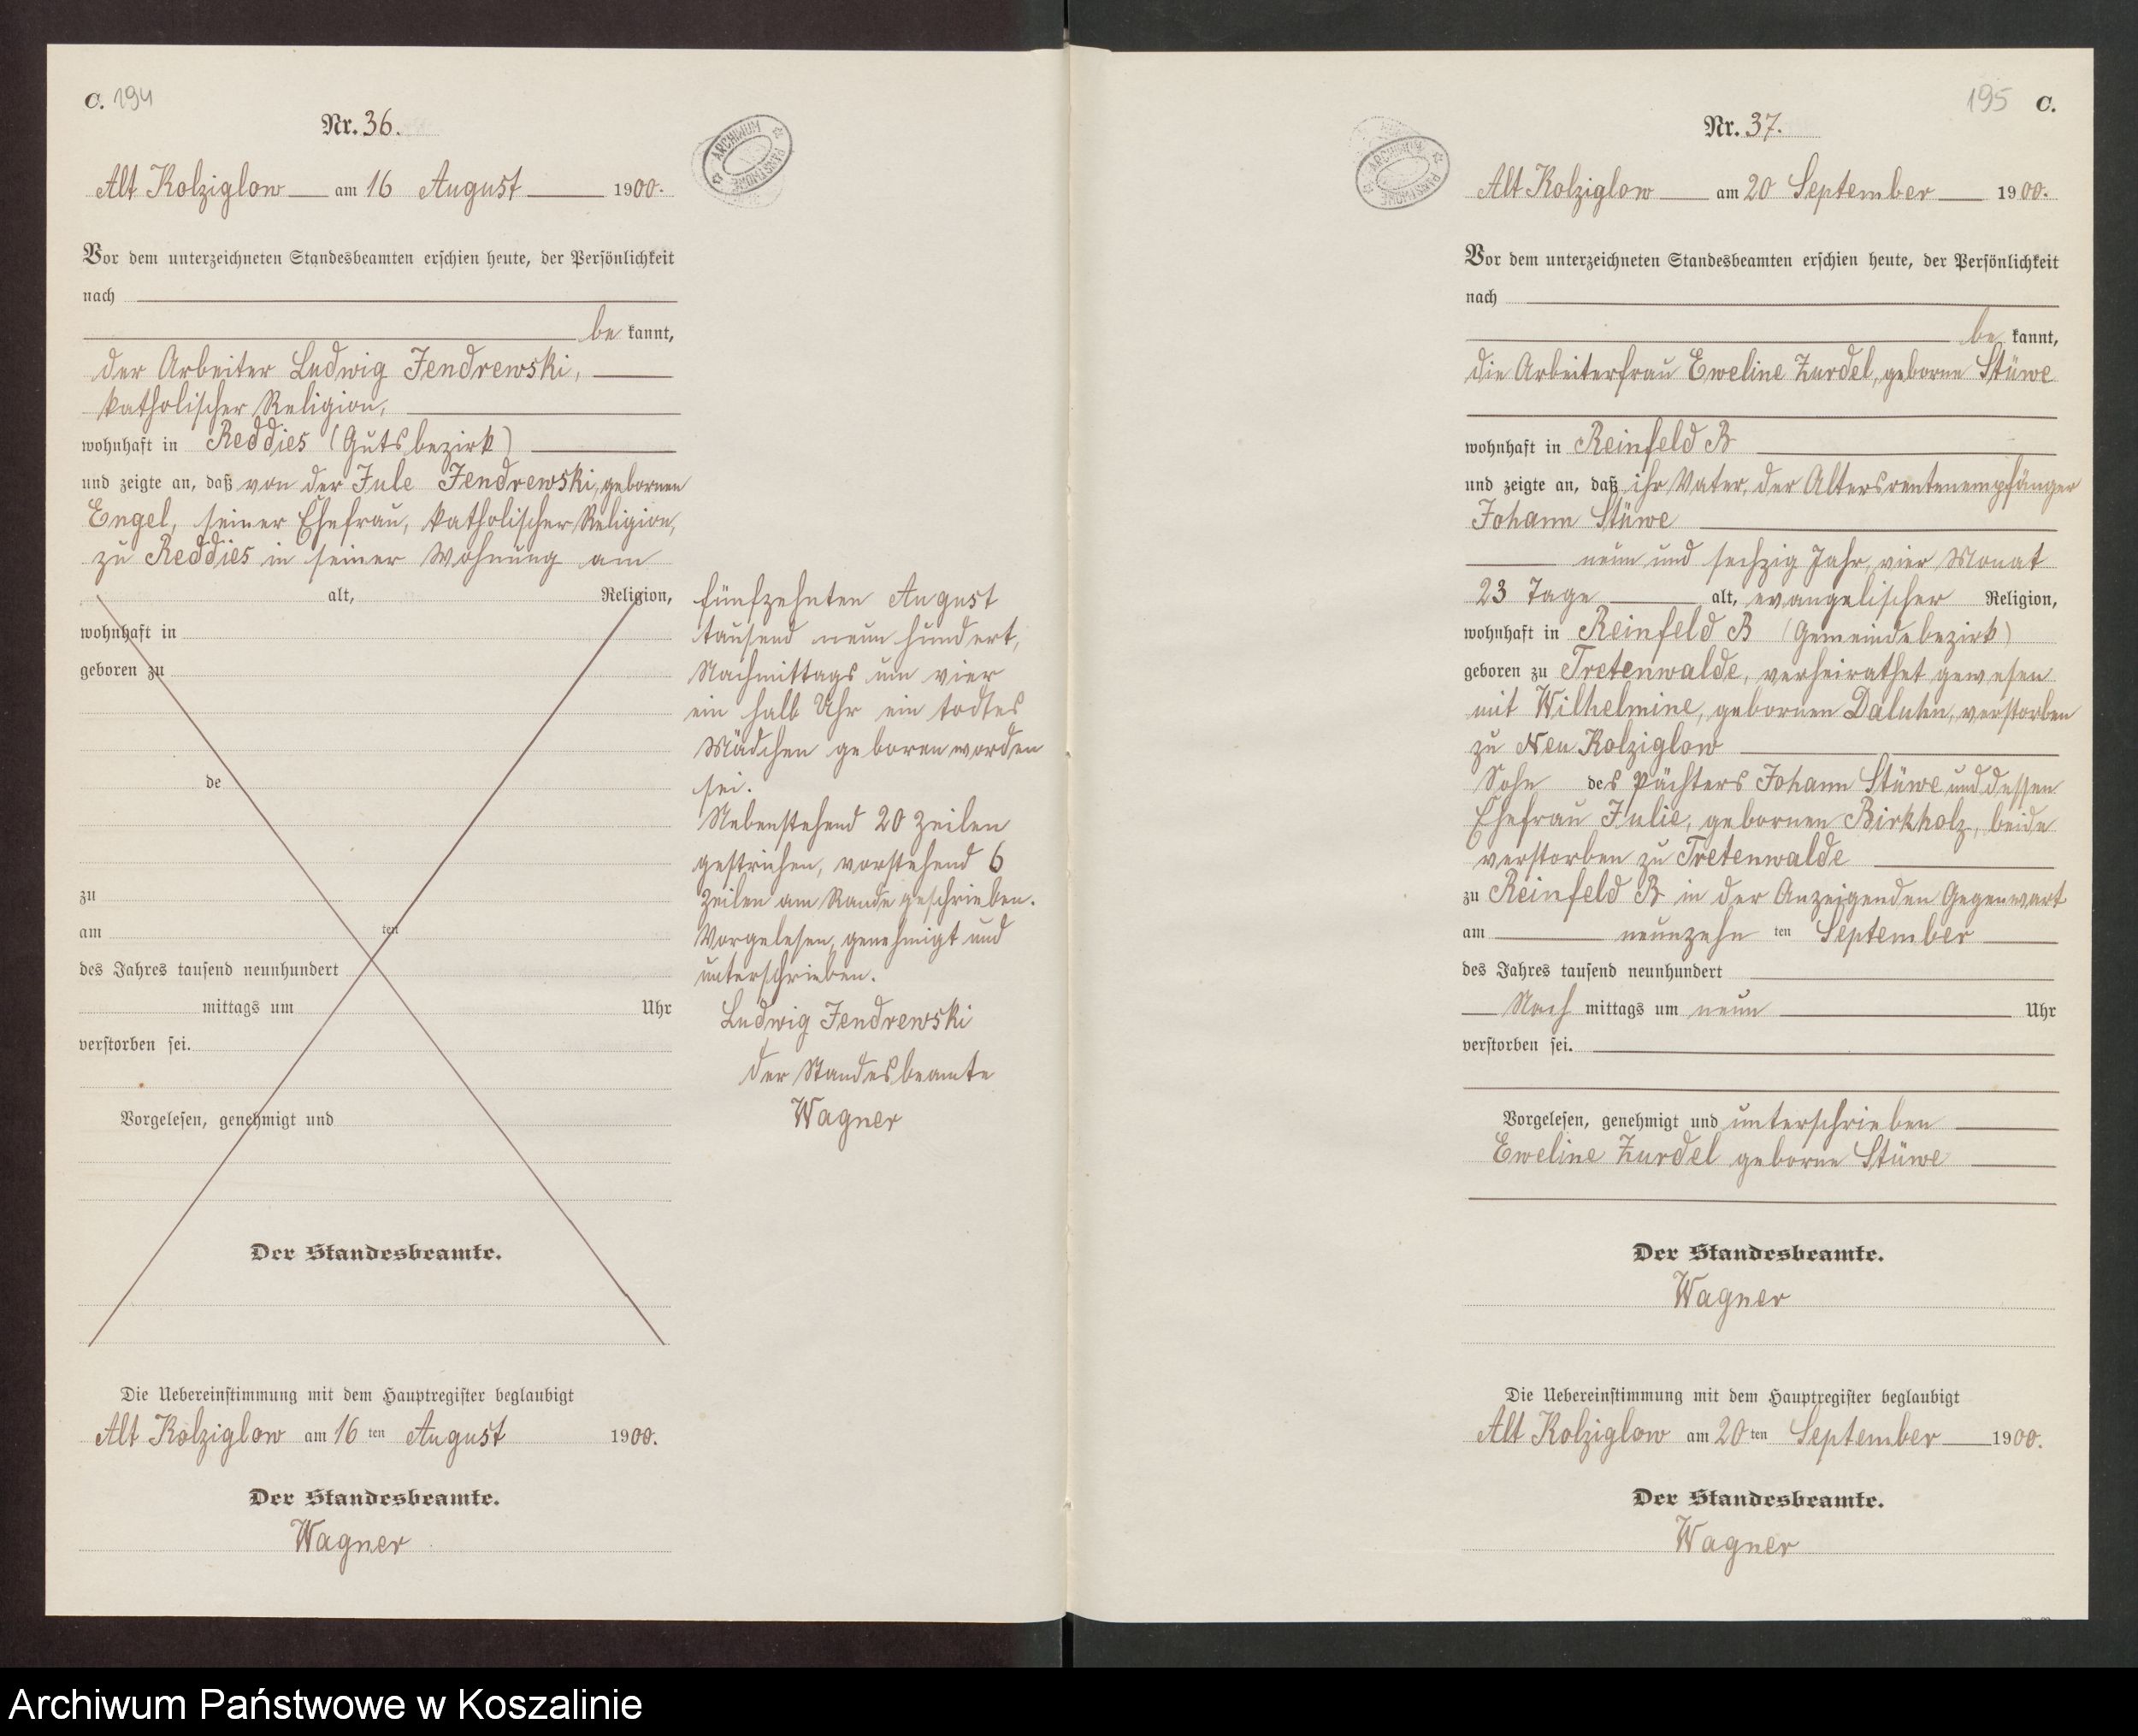 C. 194
Nr. 36.
Alt Kolziglow am 16 August 1900.
Vor dem unterzeichneten Standesbeamten erschien heute, der Persönlichkeit
nach
be kannt,
der Arbeiter Ludwig Jendrewski,
katholischer Religion,
wohnhaft in Reddies (Gutsbezirk)
und zeigte an, daß von der Jule Jendrewski, gebornen
Engel, seiner Ehefrau, katholischer Religion,
zu Reddies in seiner Wohnung am
alt, Religion,
wohnhaft in
geboren zu
de
zu
am ten
des Jahres tausend neunhundert
mittags um Uhr
verstorben sei.
Vorgelesen, genehmigt und
Der Standesbeamte.
Die Uebereinstimmung mit dem Hauptregister beglaubigt
Alt Kolziglow am 16 ten August 1900.
Der Standesbeamte.
Wagner
ARCHIWUM PAŃSTWOWE
fünfzehnten August
tausend neun hundert,
Nachmittags um vier
ein halb Uhr ein todtes
Mädchen geboren worden
sei.
Nebenstehend 20 Zeilen
gestrichen, vorstehend 6
Zeilen am Rande geschrieben.
Vorgelesen, genehmigt und
unterschrieben.
Ludwig Jendrewski
der Standesbeamte
Wagner
195 C.
Nr. 37.
ARCHIWUM PAŃSTWOWE
Alt Kolziglow am 20 September 1900.
Vor dem unterzeichneten Standesbeamten erschien heute, der Persönlichkeit
nach
be kannt,
die Arbeiterfrau Eweline Zurdel, geborne Stüwe
wohnhaft in Reinfeld B
und zeigte an, daß ihr Vater, der Altersrentenempfänger
Johann Stüwe
neun und sechzig Jahr, vier Monat
23 Tage alt, evangelischer Religion,
wohnhaft in Reinfeld B (Gemeindebezirk)
geboren zu Tretenwalde, verheirathet gewesen
mit Wilhelmine, gebornen verstorben
zu Neu Kolziglow
Sohn des Pächters Johann Stüwe und dessen
Ehefrau Julie, gebornen Birkholz, beide
verstorben zu Tretenwalde
zu Reinfeld B in der Anzeigenden Gegenwart
am neunzehn ten September
des Jahres tausend neunhundert
Nach mittags um neun Uhr
verstorben sei.
Vorgelesen, genehmigt und unterschrieben
Eweline Zurdel geborne Stüwe
Der Standesbeamte.
Wagner
Die Uebereinstimmung mit dem Hauptregister beglaubigt
Alt Kolziglow am 20 ten September 1900.
Der Standesbeamte.
Wagner
Archiwum Państwowe w Koszalinie